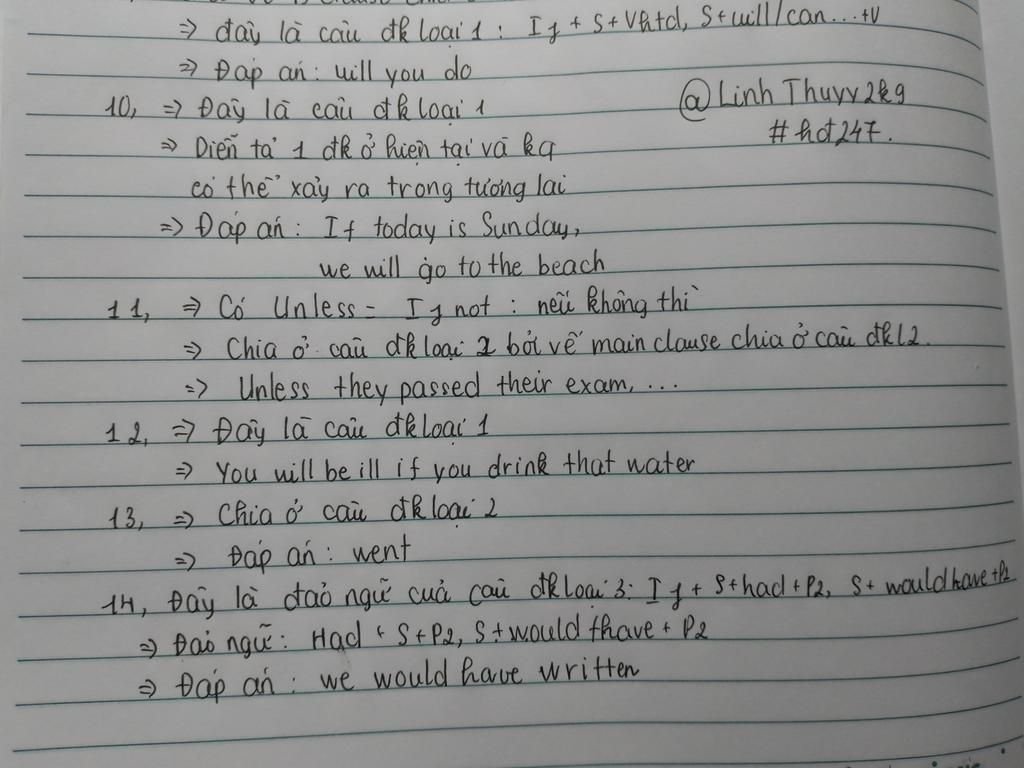 ⇒ đây là câu đk loại 1 : If + S + Vhtd, S + will / can ... + V
⇒ Đáp án : will you do
10, ⇒ Đây là câu đk loại 1
@LinhThuyy2k9
#hd247.
⇒ Diễn tả 1 đk ở hiện tại và kq
có thể xảy ra trong tương lai
⇒ Đáp án : If today is Sunday,
we will go to the beach
11, ⇒ Có Unless = If not : nếu không thì
⇒ Chia ở câu đk loại 2 bởi vế main clause chia ở câu đkl2.
=> Unless they passed their exam, ...
12, ⇒ Đây là câu đk loại 1
⇒ You will be ill if you drink that water
13, ⇒ Chia ở câu đk loại 2
⇒ Đáp án : went
14, Đây là đảo ngữ của câu đk loại 3: If + S + had + P2, S + would have + P2
⇒ Đảo ngữ : Had + S + P2, S + would + have + P2
⇒ Đáp án : we would have written